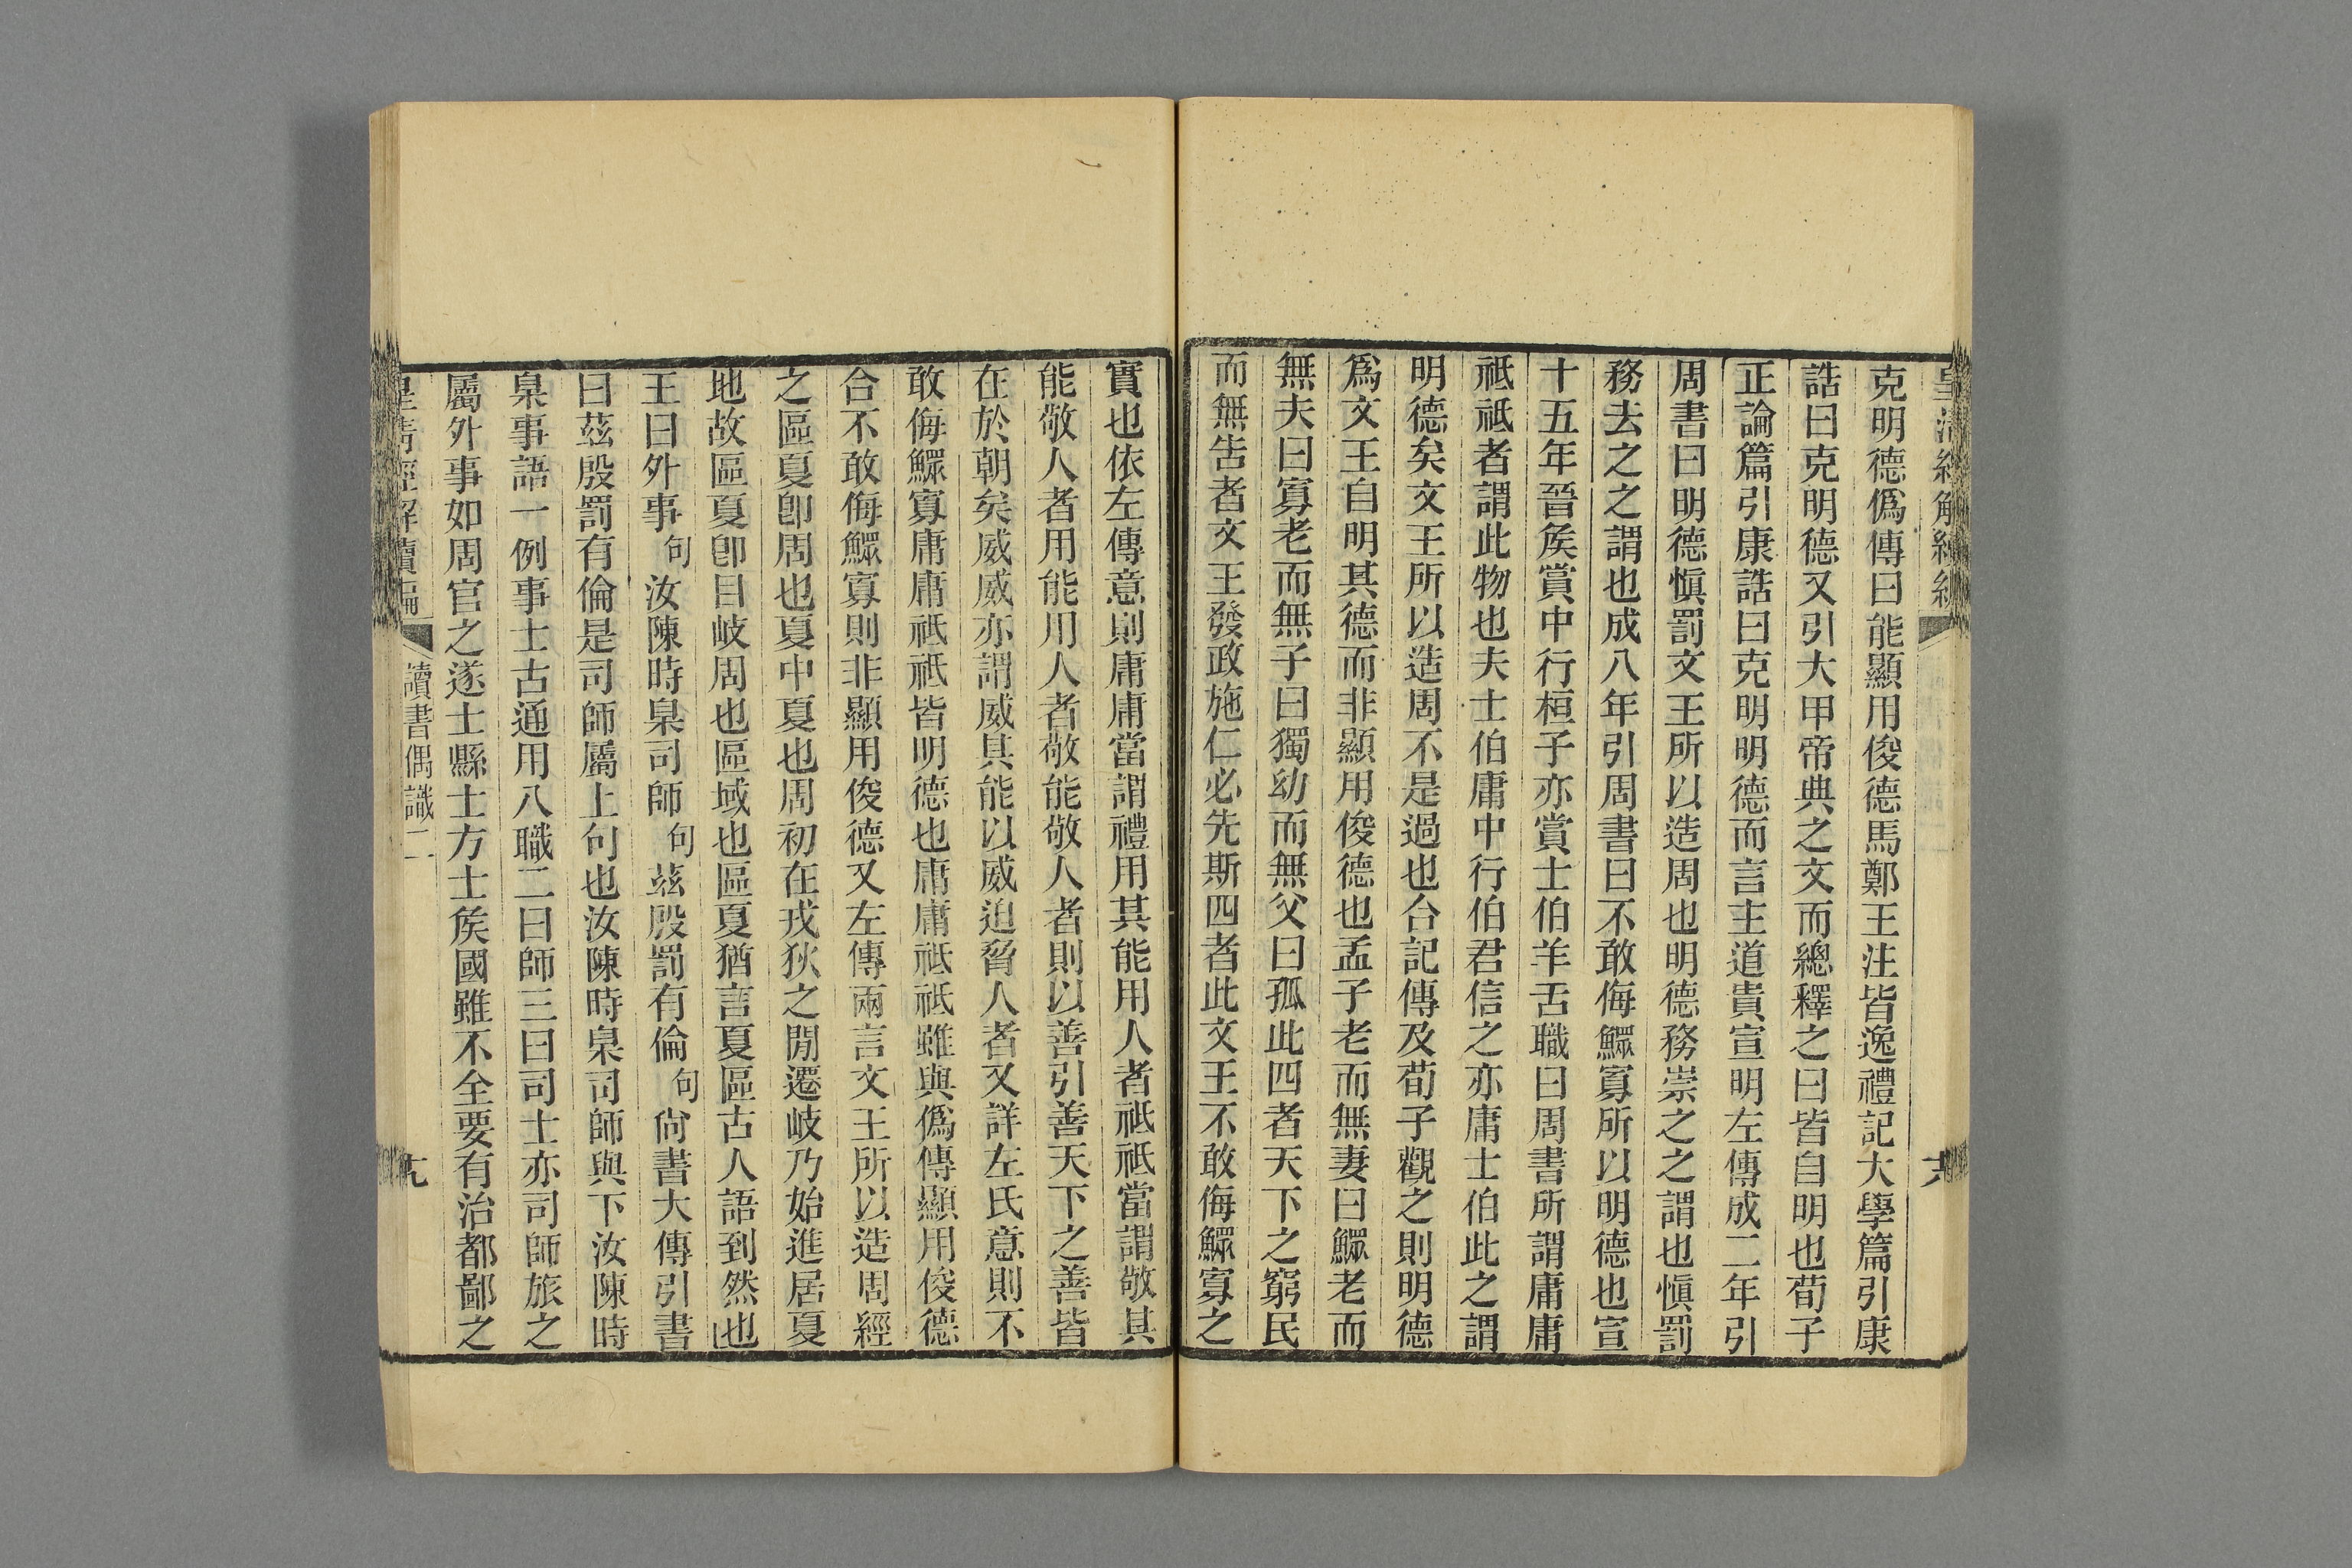 克明德僞傳曰能顯用俊德馬鄭王注皆逸禮記大學篇引康
誥曰克明德又引大甲帝典之文而總釋之曰皆自明也荀子
正論篇引康誥曰克明明德而言主道貴宣明左傳成二年引
周書曰明德愼罰文王所以造周也明德務崇之之謂也愼罰
務去之之謂也成八年引周書曰不敢侮鰥寡所以明德也宣
十五年晉矦賞中行桓子亦賞士伯羊舌職曰周書所謂庸庸
祗祗者謂此物也夫士伯庸中行伯君信之亦庸士伯此之謂
明德矣文王所以造周不是過也合記傳及荀子觀之則明德
爲文王自明其德而非顯用俊德也孟子老而無妻曰鰥老而
無夫曰寡老而無子曰獨幼而無父曰孤此四者天下之窮民
而無告者文王發政施仁必先斯四者此文王不敢侮鰥寡之
實也依左傳意則庸庸當謂禮用其能用人者祗祗當謂敬其
能敬人者用能用人者敬能敬人者則以善引善天下之善皆
在於朝矣威威亦謂威其能以威迫脅人者又詳左氏意則不
敢侮鰥寡庸庸祗祗皆明德也庸庸祗祗雖與僞傳顯用俊德
合不敢侮鰥寡則非顯用俊德又左傳兩言文王所以造周經
之區夏卽周也夏中夏也周初在戎狄之閒遷岐乃始進居夏
地故區夏卽目岐周也區域也區夏猶言夏區古人語到然也
王曰外事句汝陳時臬司師句茲殷罰有倫句尙書大傳引書
曰茲殷罰有倫是司師屬上句也汝陳時臬司師與下汝陳時
臬事語一例事士古通用八職二曰師三曰司士亦司師旅之
屬外事如周官之遂士縣士方士矦國雖不全要有治都鄙之
皇淸經解續編
讀書偶識二